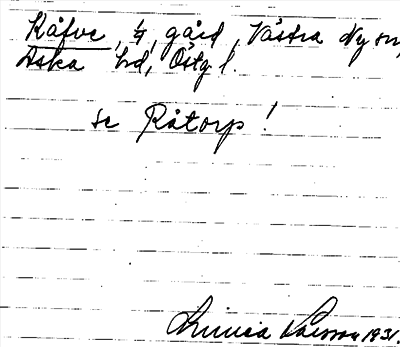 Råfve, 1/4, gård, Västra Ny sn,
Aska hd, Östg l.
se Råtorp!
Linnea Larsson 1931.